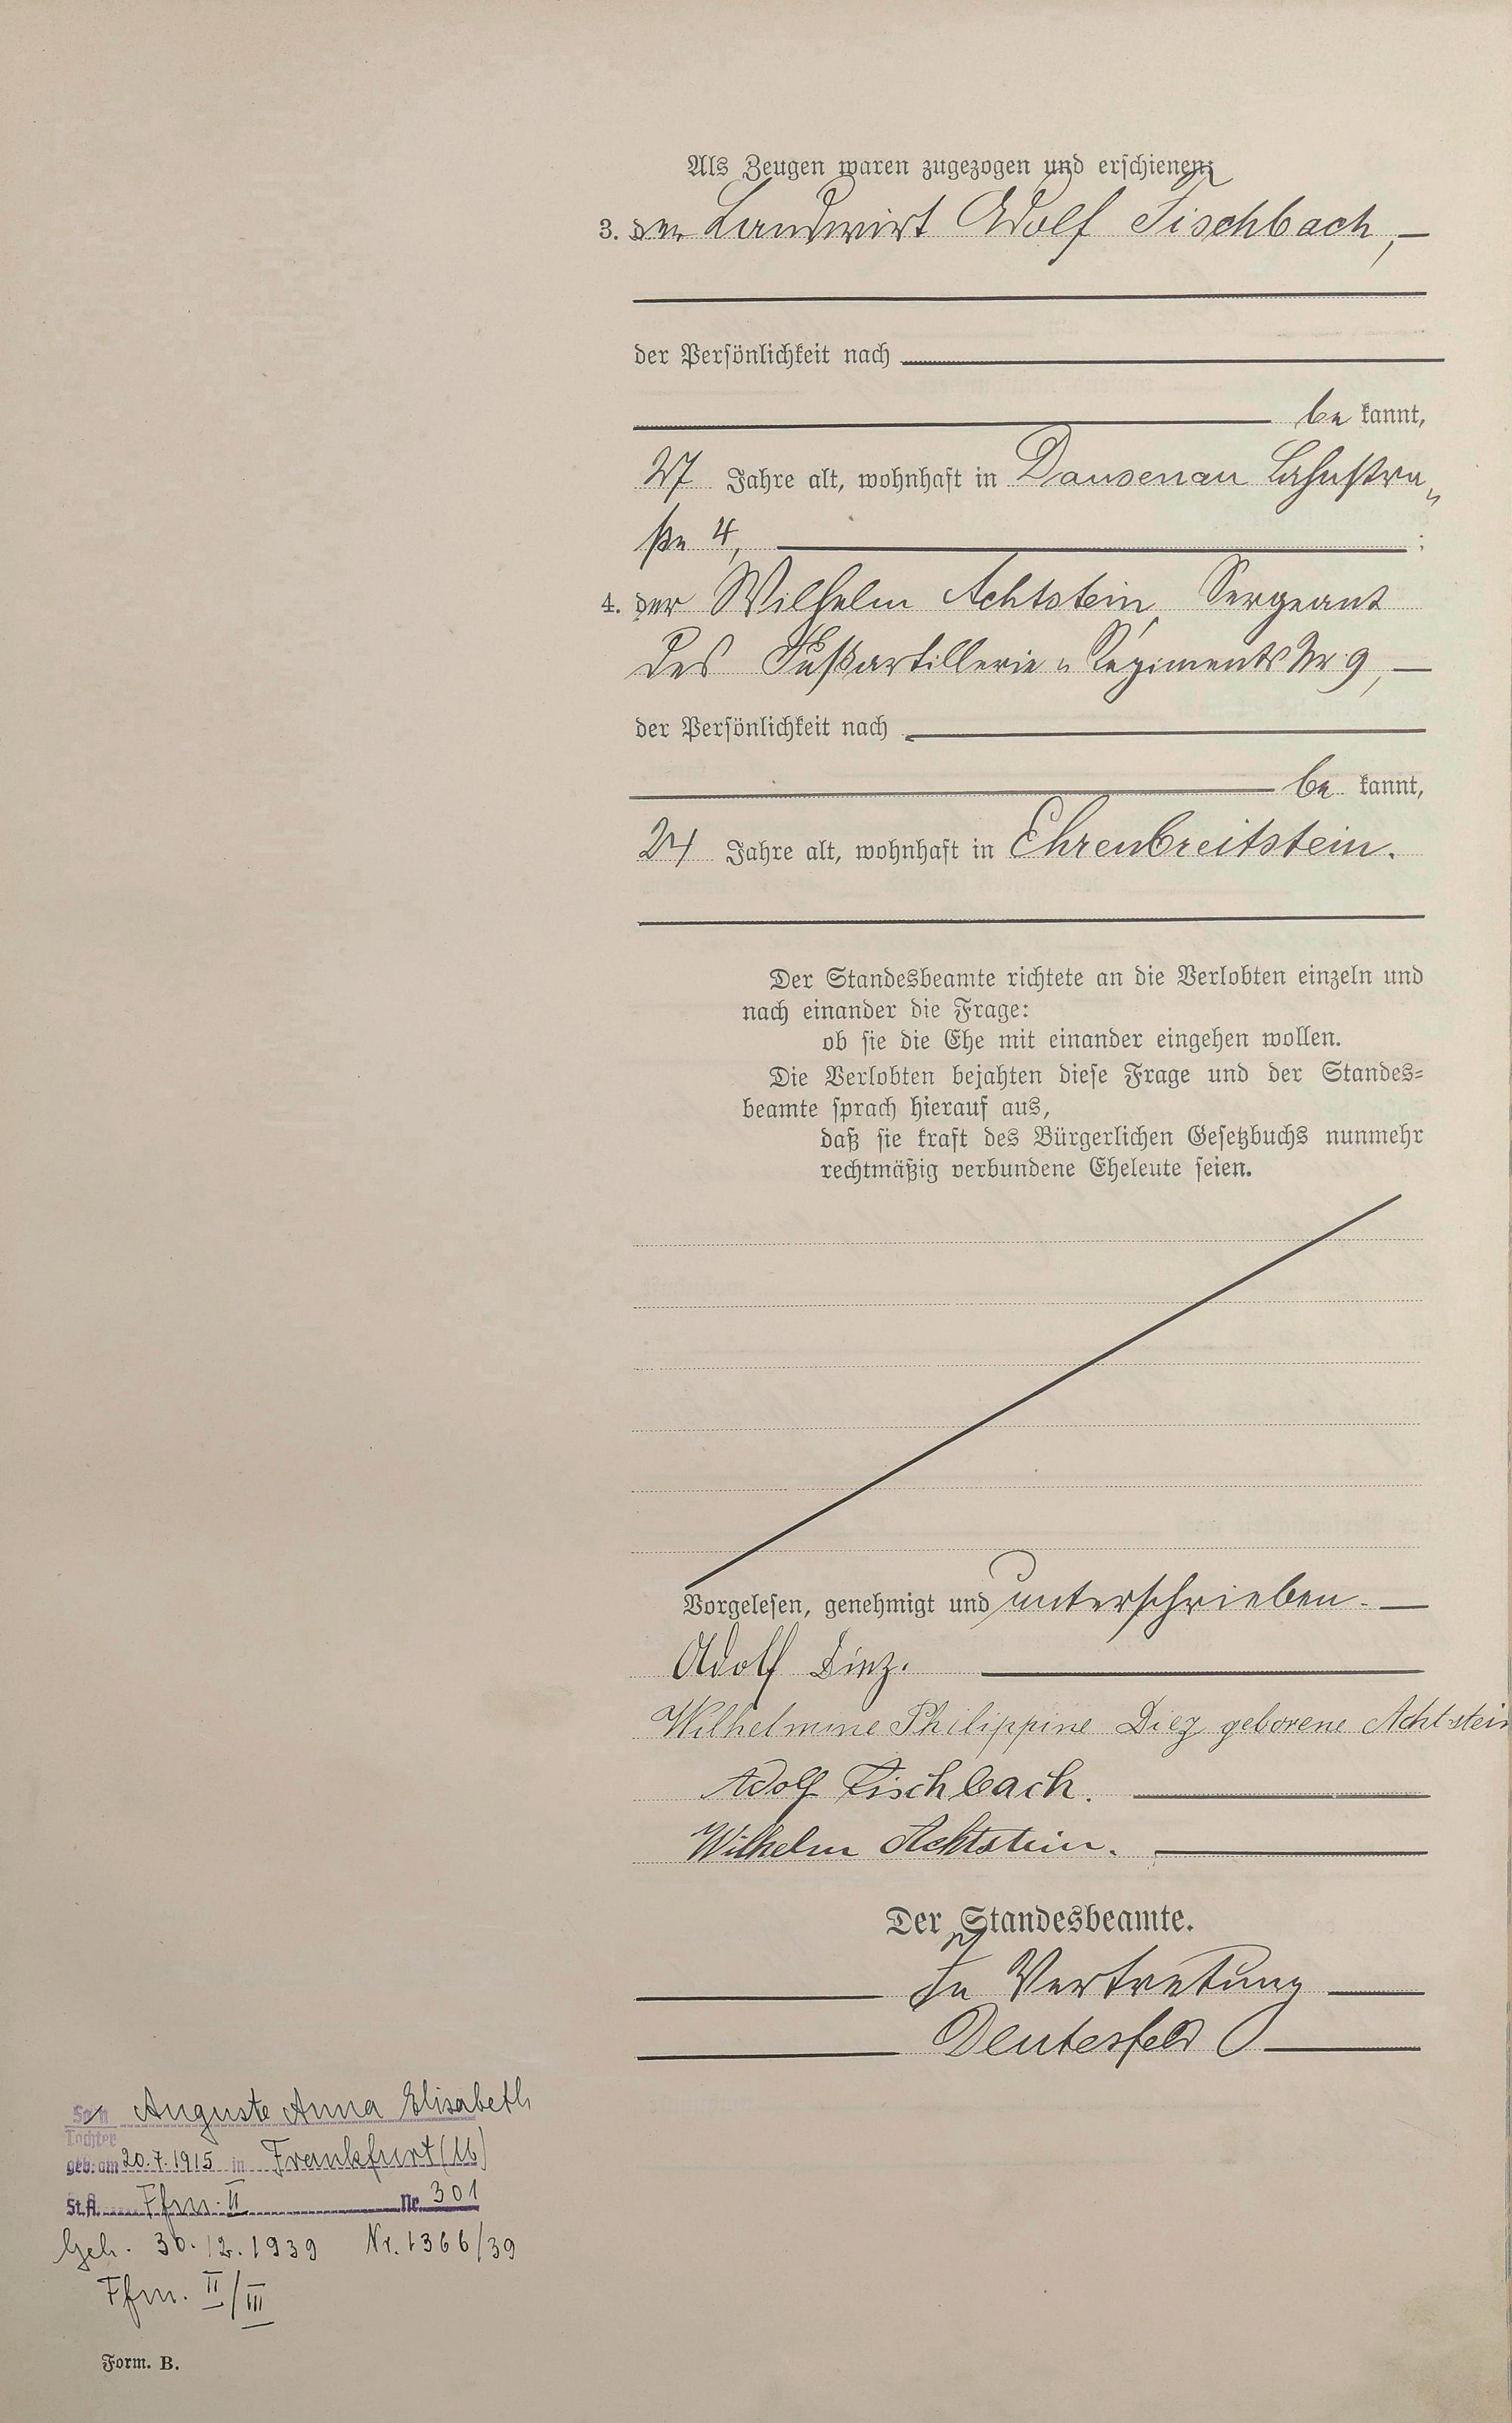 Als Zeugen waren zugezogen und erschienen:
3. der Landwirt Adolf Fischbach, —
der Persönlichkeit nach
be kannt,
27 Jahre alt, wohnhaft in Dausenau Lahnstra„
ße 4, ;
4. der Wilhelm Achtstein, Sergeant
des Fußartillerie„Regiments Nr. 9, —
der Persönlichkeit nach
be kannt,
24 Jahre alt, wohnhaft in Ehrenbreitstein.
Der Standesbeamte richtete an die Verlobten einzeln und
nach einander die Frage:
ob sie die Ehe mit einander eingehen wollen.
Die Verlobten bejahten diese Frage und der Standes=
beamte sprach hierauf aus,
daß sie kraft des Bürgerlichen Gesetzbuchs nunmehr
rechtmäßig verbundene Eheleute seien.
Vorgelesen, genehmigt und unterschrieben. —
Adolf Diez.
Wilhelmine Philippine Diez geborene Achtstein
Adolf Fischbach.
Wilhelm Achtstein.
Der Standesbeamte.
In Vertretung
Deutesfeld
Sohn Auguste Anna Elisabeth
Tochter
geb. am 20.7.1915 in Frankfurt (M)
St.A. Ffm. II Nr. 301
Geh. 30.12.1939 Nr. 1366/39
Ffm. II/III
Form. B.